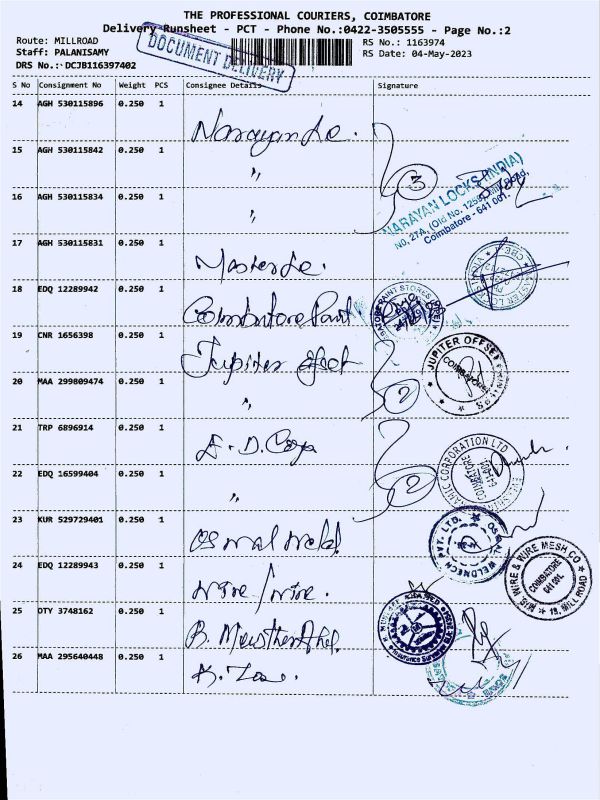 THE PROFESSIONAL COURIERS, COIMBATORE
Delivery Runsheet - PCT - Phone No.:0422-3505555 - Page No.:2
Route: MILLROAD
RS No.: 1163974
Staff: PALANISAMY
RS Date: 04-May-2023
DRS No.: DCJB116397402
DOCUMENT DELIVERY
S No Consignment No Weight PCS Consignee Details Signature
14 AGH 530115896 0.250 1 Narayan Lo.
15 AGH 530115842 0.250 1 ,,
3
16 AGH 530115834 0.250 1 ,,
NARAYAN LOCKS (INDIA)
NO, 27A, (Old No. 1259) Mill Road,
Coimbatore - 641 001.
17 AGH 530115831 0.250 1 Master Lo.
18 EDQ 12289942 0.250 1 Coimbatore Paint
19 CNR 1656398 0.250 1 Jupiter offset
JUPITER OFFSET
COIMBATORE
20 MAA 299809474 0.250 1 ,,
2
21 TRP 6896914 0.250 1
CORPORATION LTD
COIMBATORE
641 001
22 EDQ 16599404 0.250 1 ,,
2
23 KUR 529729401 0.250 1
WELDMECH PVT. LTD.
24 EDQ 12289943 0.250 1 wire/wire.
WIRE & WIRE MESH CO
COIMBATORE
641 001.
MILL ROAD
25 OTY 3748162 0.250 1
26 MAA 295640448 0.250 1